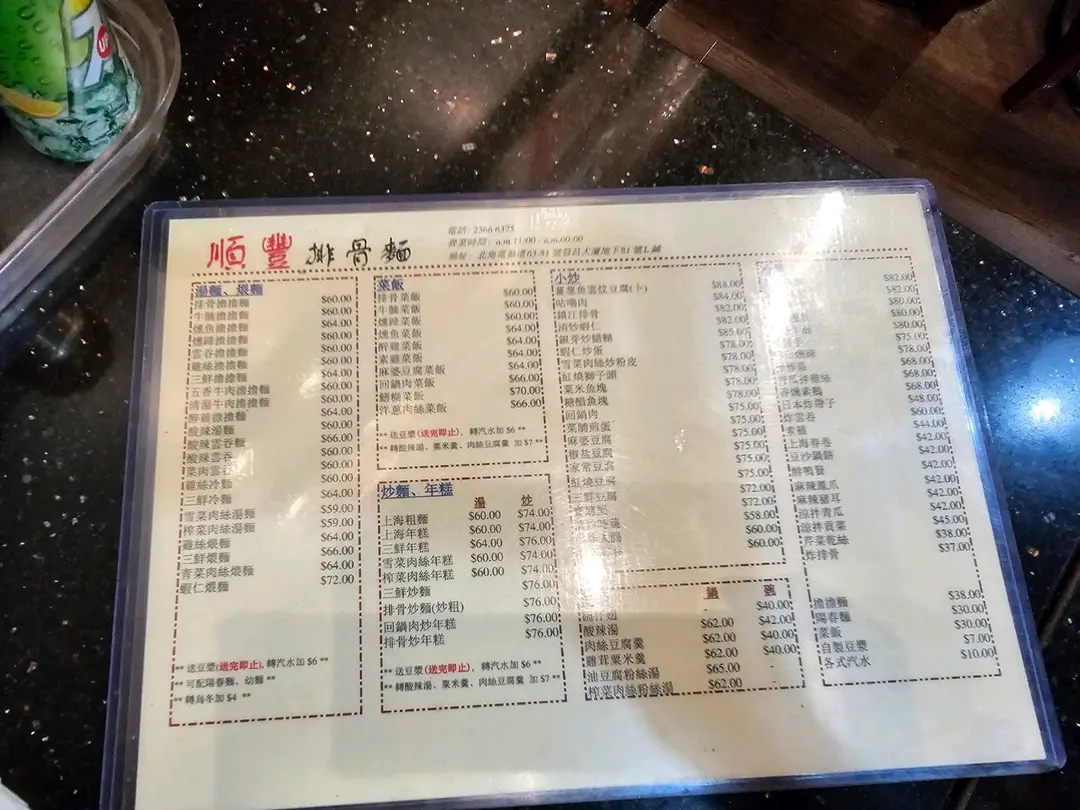 順豐排骨麵
電話: 2566 6375
營業時間: a.m 11:00 - a.m.00:00
湯麵、煨麵
排骨擔擔麵
牛腩擔擔麵
燻魚擔擔麵
燻蹄擔擔麵
雲吞擔擔麵
雞絲擔擔麵
三鮮擔擔麵
五香牛肉擔擔麵
清湯牛肉擔擔麵
醉雞擔擔麵
酸辣湯麵
酸辣雲吞麵
菜肉雲吞
雞絲冷麵
三鮮冷麵
雪菜肉絲湯麵
榨菜肉絲湯麵
雞絲煨麵
三鮮煨麵
青菜肉絲煨麵
蝦仁煨麵
$60.00
$60.00
$60.00
$60.00
$60.00
$60.00
$64.00
$60.00
$60.00
$64.00
$60.00
$66.00
$60.00
$60.00
$64.00
$59.00
$59.00
$64.00
$66.00
$64.00
$72.00
** 送豆漿(送完即止), 轉汽水加 $6 **
** 可配陽春麵、幼麵 **
** 轉烏冬加 $4 **
菜飯
排骨菜飯 $60.00
牛腩菜飯 $60.00
燻蹄菜飯 $60.00
燻魚菜飯 $64.00
醉雞菜飯 $64.00
素雞菜飯 $64.00
麻婆豆腐菜飯 $64.00
回鍋肉菜飯 $66.00
鱔糊菜飯 $70.00
洋蔥肉絲菜飯 $66.00
** 送豆漿(送完即止), 轉汽水加 $6 **
** 轉酸辣湯、粟米羹、肉絲豆腐羹 加 $7 **
炒麵、年糕
湯 炒
上海粗麵 $60.00 $74.00
上海年糕 $60.00 $74.00
三鮮年糕 $64.00 $76.00
雪菜肉絲年糕 $60.00 $74.00
榨菜肉絲年糕 $60.00 $74.00
三鮮炒麵 $76.00
排骨炒麵(炒粗) $76.00
回鍋肉炒年糕 $76.00
排骨炒年糕 $76.00
** 送豆漿(送完即止), 轉汽水加 $6 **
** 轉酸辣湯、粟米羹、肉絲豆腐羹 加 $7 **
小炒
咕嚕肉
鎮江排骨
清炒蝦仁
銀芽炒鱔糊
蝦仁炒蛋
雪菜肉絲炒粉皮
紅燒獅子頭
粟米魚塊
糖醋魚塊
回鍋肉
菜脯煎蛋
麻婆豆腐
椒鹽豆腐
家常豆腐
紅燒豆腐
三鮮豆腐
$88.00
$84.00
$82.00
$82.00
$85.00
$78.00
$78.00
$78.00
$78.00
$75.00
$75.00
$75.00
$75.00
$75.00
$72.00
$72.00
$58.00
$60.00
$60.00
鍋 碗
- $40.00
酸辣湯 $62.00 $42.00
肉絲豆腐羹 $62.00 $40.00
雞茸粟米羹 $62.00 $40.00
油豆腐粉絲湯 $65.00 -
榨菜肉絲粉絲湯 $62.00 -
日本炸帶子
炸雲吞
素雞
上海春卷
豆沙鍋餅
醉鴨腎
麻辣鳳爪
麻辣豬耳
涼拌青瓜
涼拌貢菜
芹菜乾絲
炸排骨
$82.00
$82.00
$80.00
$80.00
$80.00
$75.00
$78.00
$68.00
$68.00
$68.00
$48.00
$60.00
$44.00
$42.00
$42.00
$42.00
$42.00
$42.00
$42.00
$45.00
$38.00
$37.00
擔擔麵 $38.00
陽春麵 $30.00
菜飯 $30.00
自製豆漿 $7.00
各式汽水 $10.00